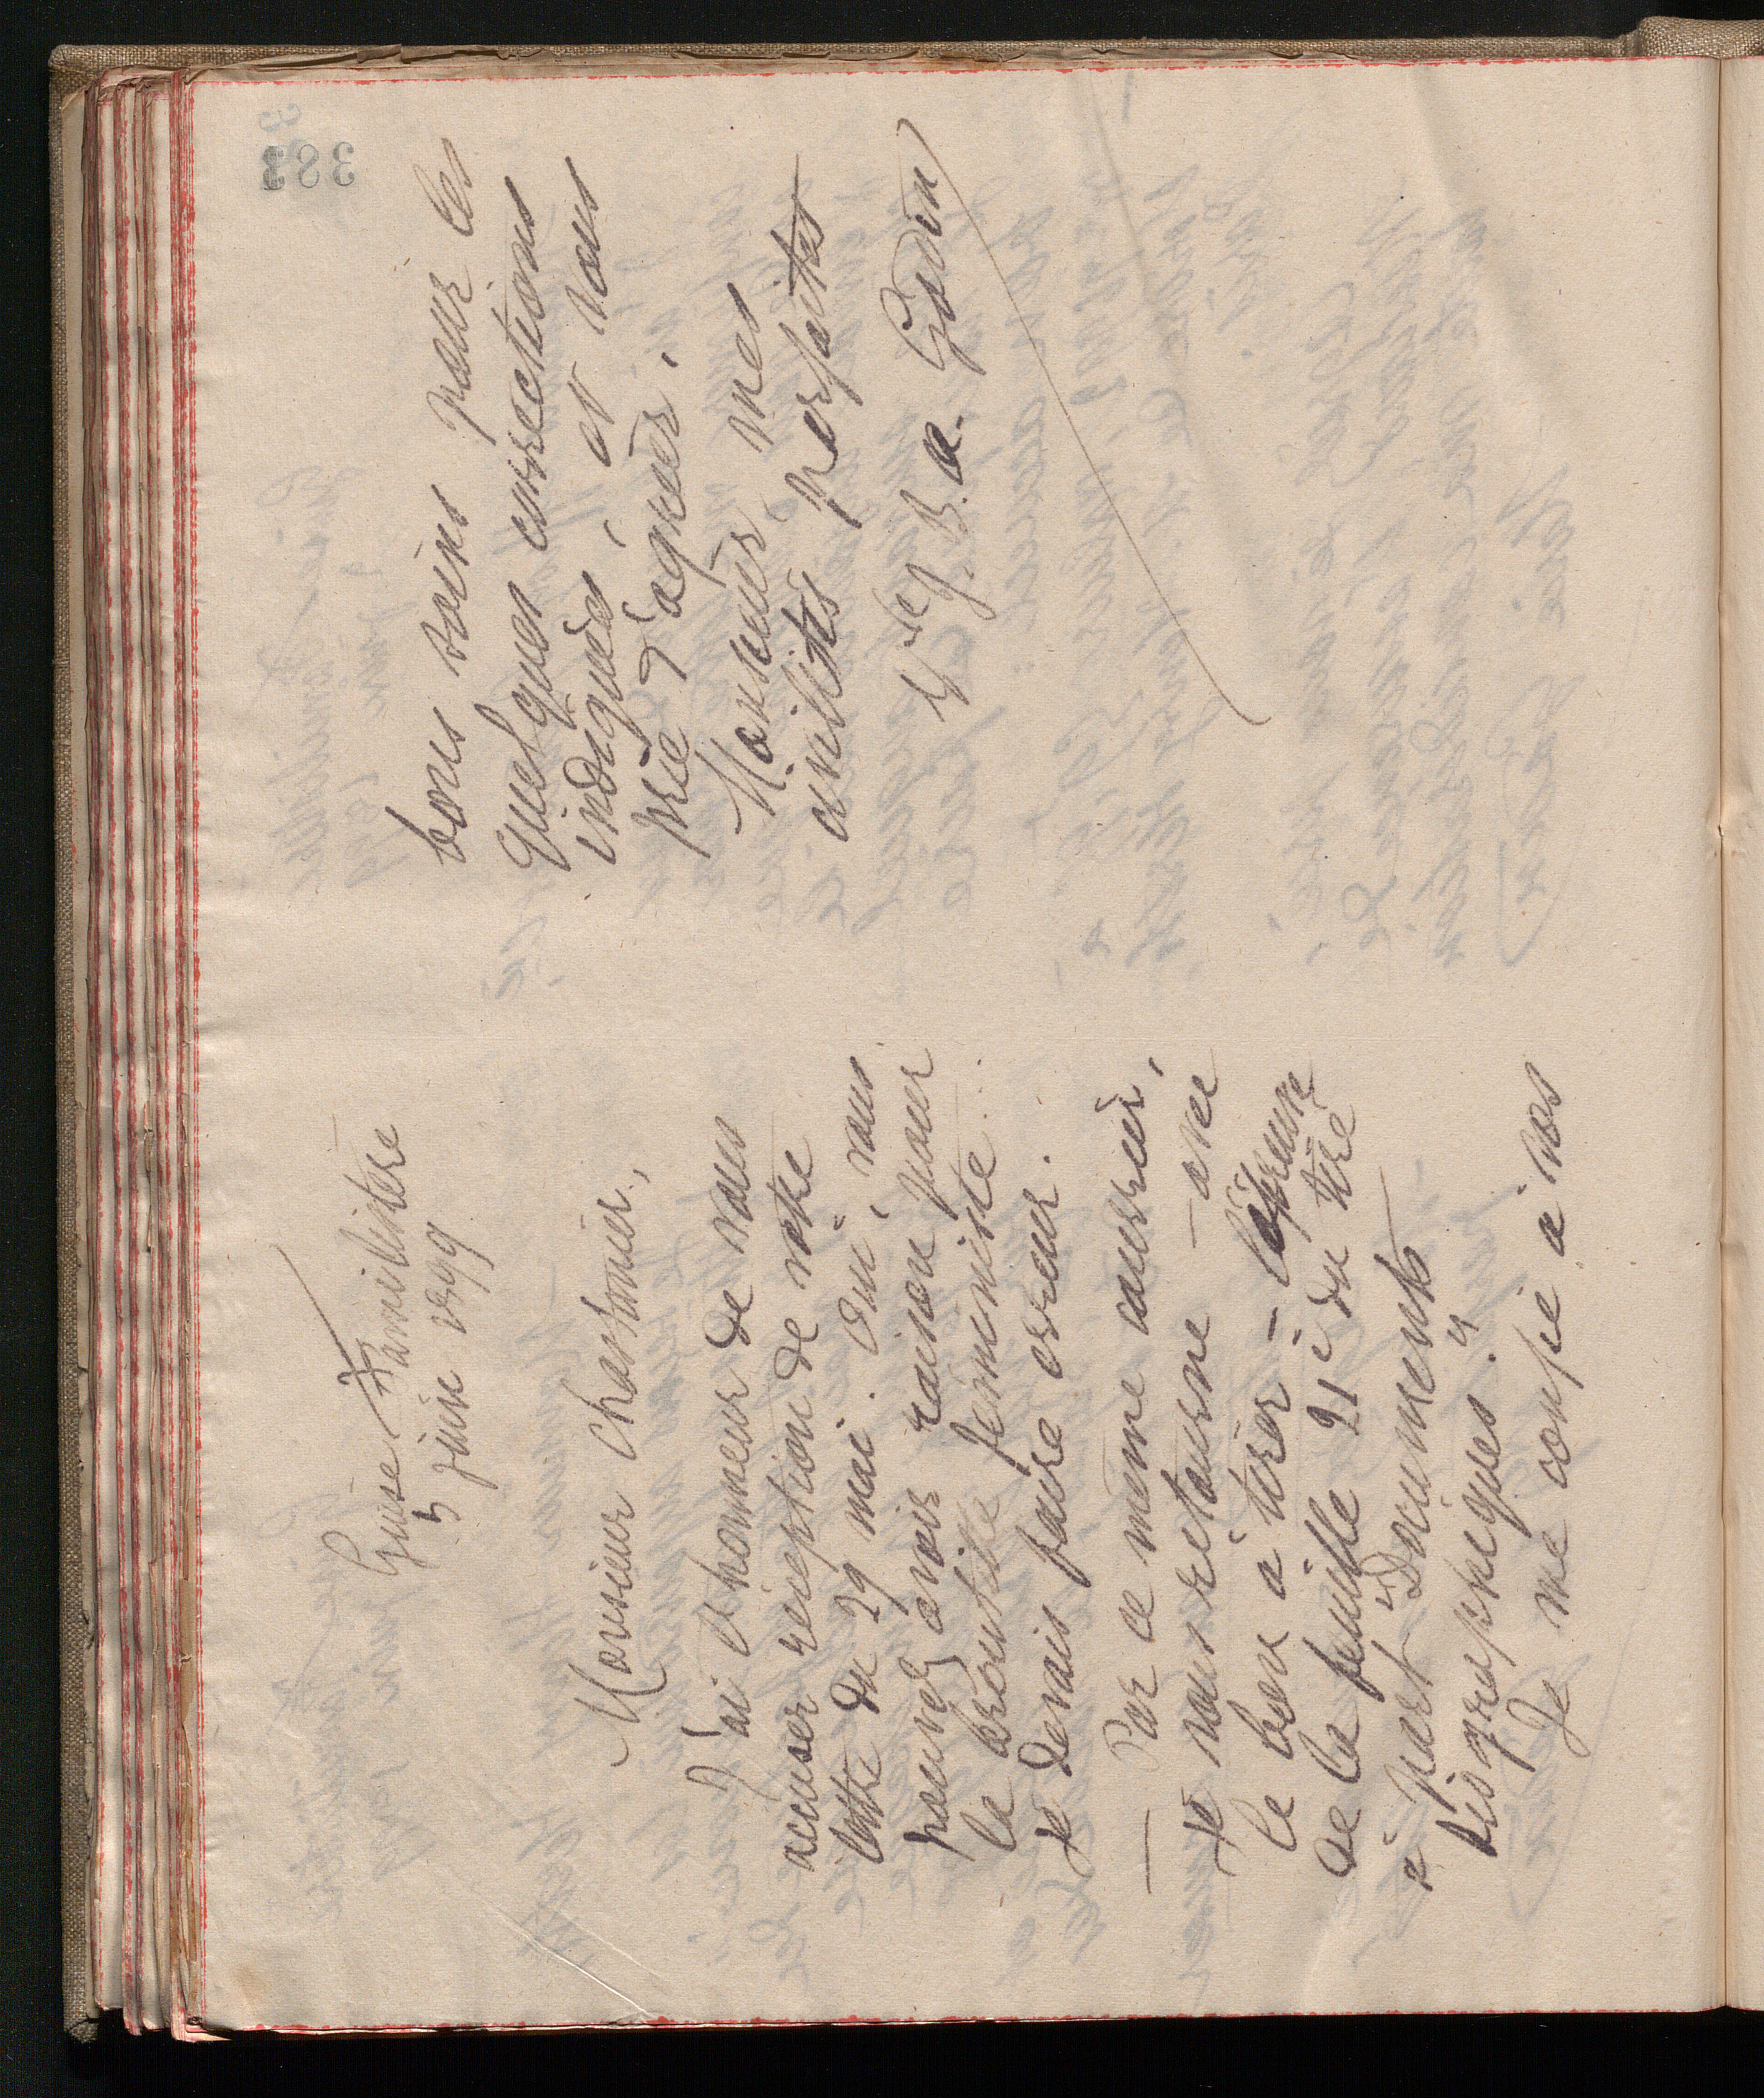 Guise Familistère
5 juin 1899
Monsieur Chartonier,
J'ai l'honneur de vous
accuser réception de votre
lettre du 29 mai. Oui, vous
pouvez avoir raison pour
la
féministe
Je devais faire erreur.
— Par ce même courrier,
Je vous retourne — avec
le bon à tirer — l'épreuve
de la feuille 21 i du tiré
à part "Documents
biographiques."
Je me confie à vos
383
bons soins pour les
quelques corrections
indiquées, et vous
prie d'agréer,
Monsieur, mes
civilités parfaites
Vve J. B. A. Godin